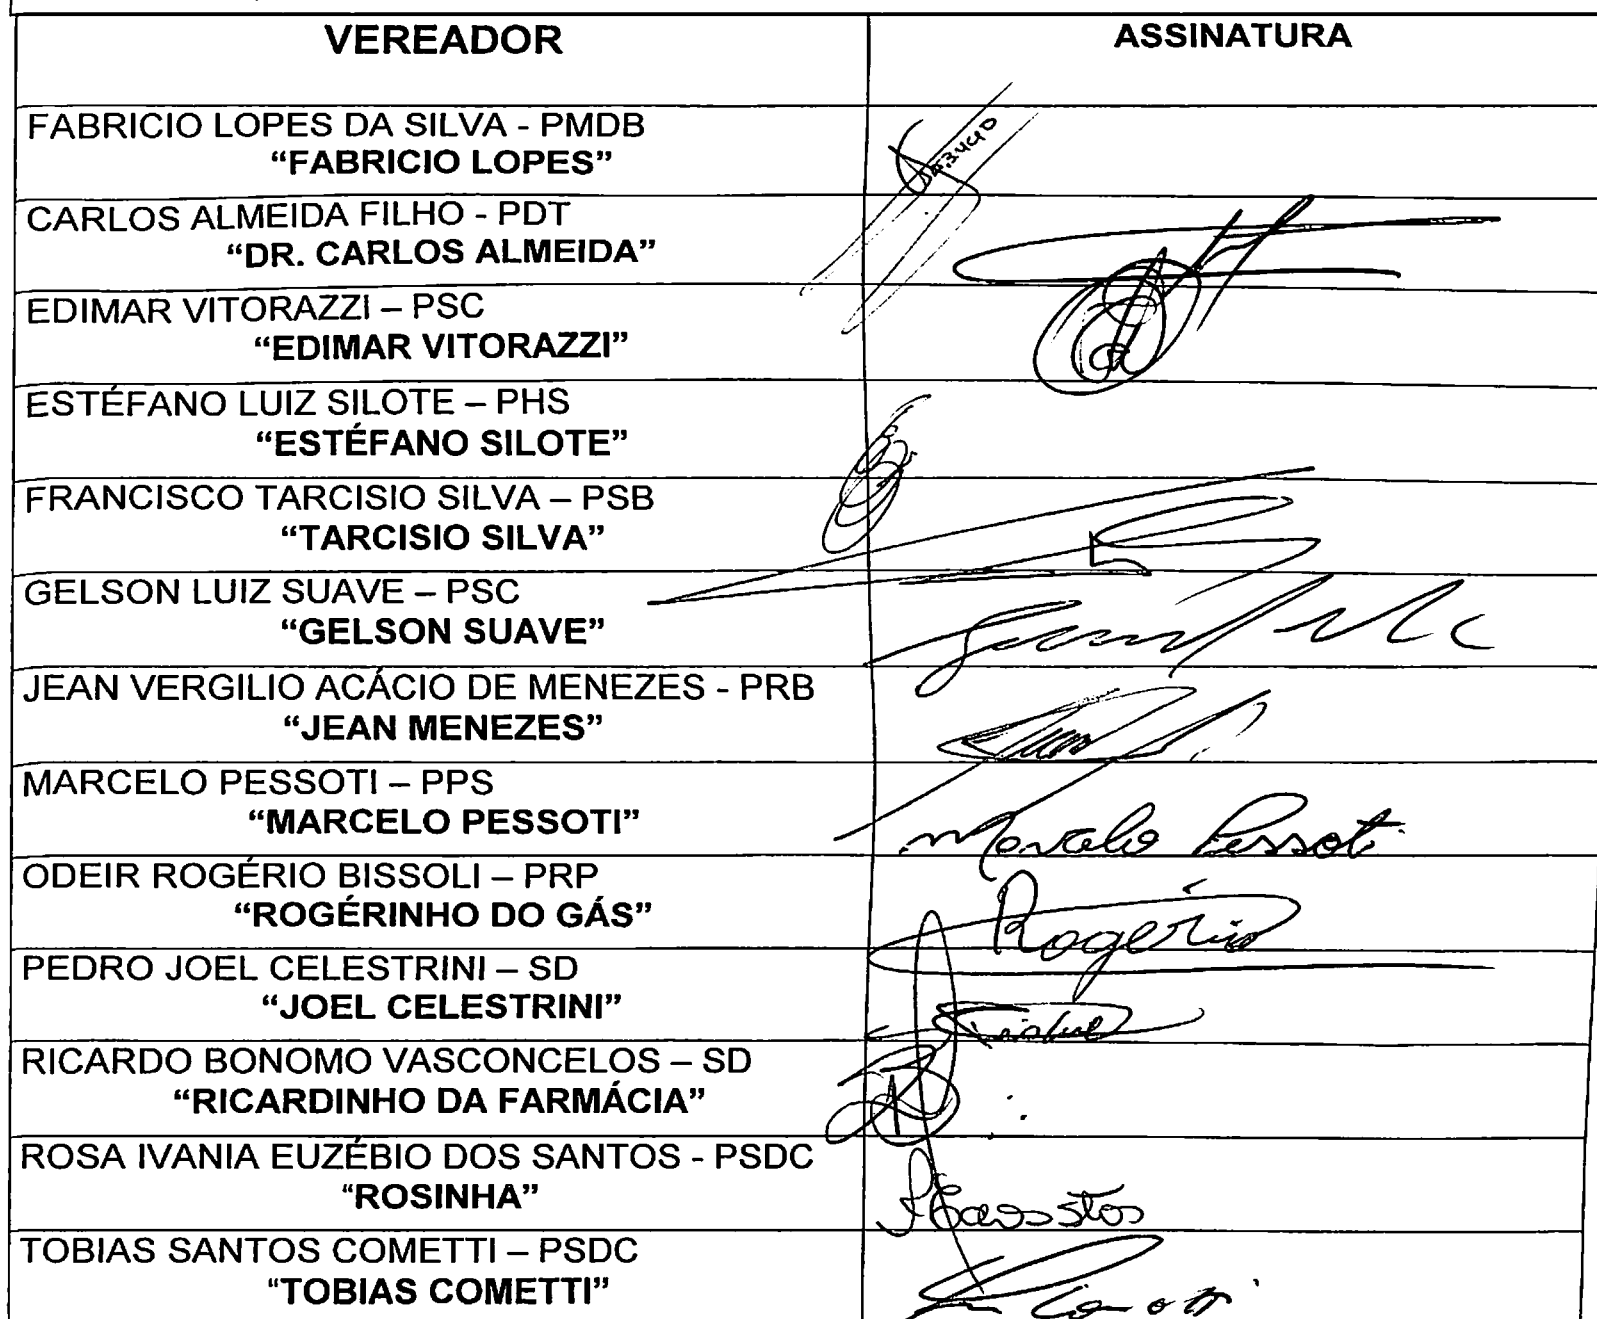 VEREADOR ASSINATURA
FABRICIO LOPES DA SILVA - PMDB
“FABRICIO LOPES”
CARLOS ALMEIDA FILHO - PDT
“DR. CARLOS ALMEIDA”
EDIMAR VITORAZZI – PSC
“EDIMAR VITORAZZI”
ESTÉFANO LUIZ SILOTE – PHS
“ESTÉFANO SILOTE”
FRANCISCO TARCISIO SILVA – PSB
“TARCISIO SILVA”
GELSON LUIZ SUAVE – PSC
“GELSON SUAVE”
JEAN VERGILIO ACÁCIO DE MENEZES - PRB
“JEAN MENEZES”
MARCELO PESSOTI – PPS
“MARCELO PESSOTI”
Marcelo Pessoti
ODEIR ROGÉRIO BISSOLI – PRP
“ROGÉRINHO DO GÁS”
Rogério
PEDRO JOEL CELESTRINI – SD
“JOEL CELESTRINI”
RICARDO BONOMO VASCONCELOS – SD
“RICARDINHO DA FARMÁCIA”
ROSA IVANIA EUZÉBIO DOS SANTOS - PSDC
“ROSINHA”
TOBIAS SANTOS COMETTI – PSDC
“TOBIAS COMETTI”